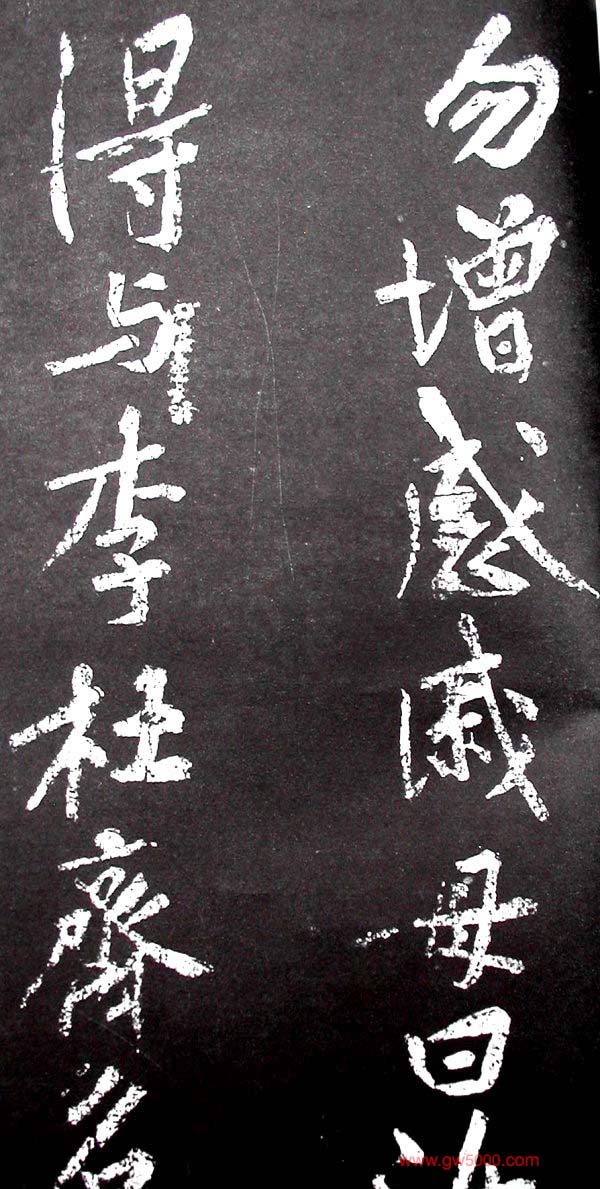 勿增感戚母曰汝
得与李杜齊名
www.gw5000.com